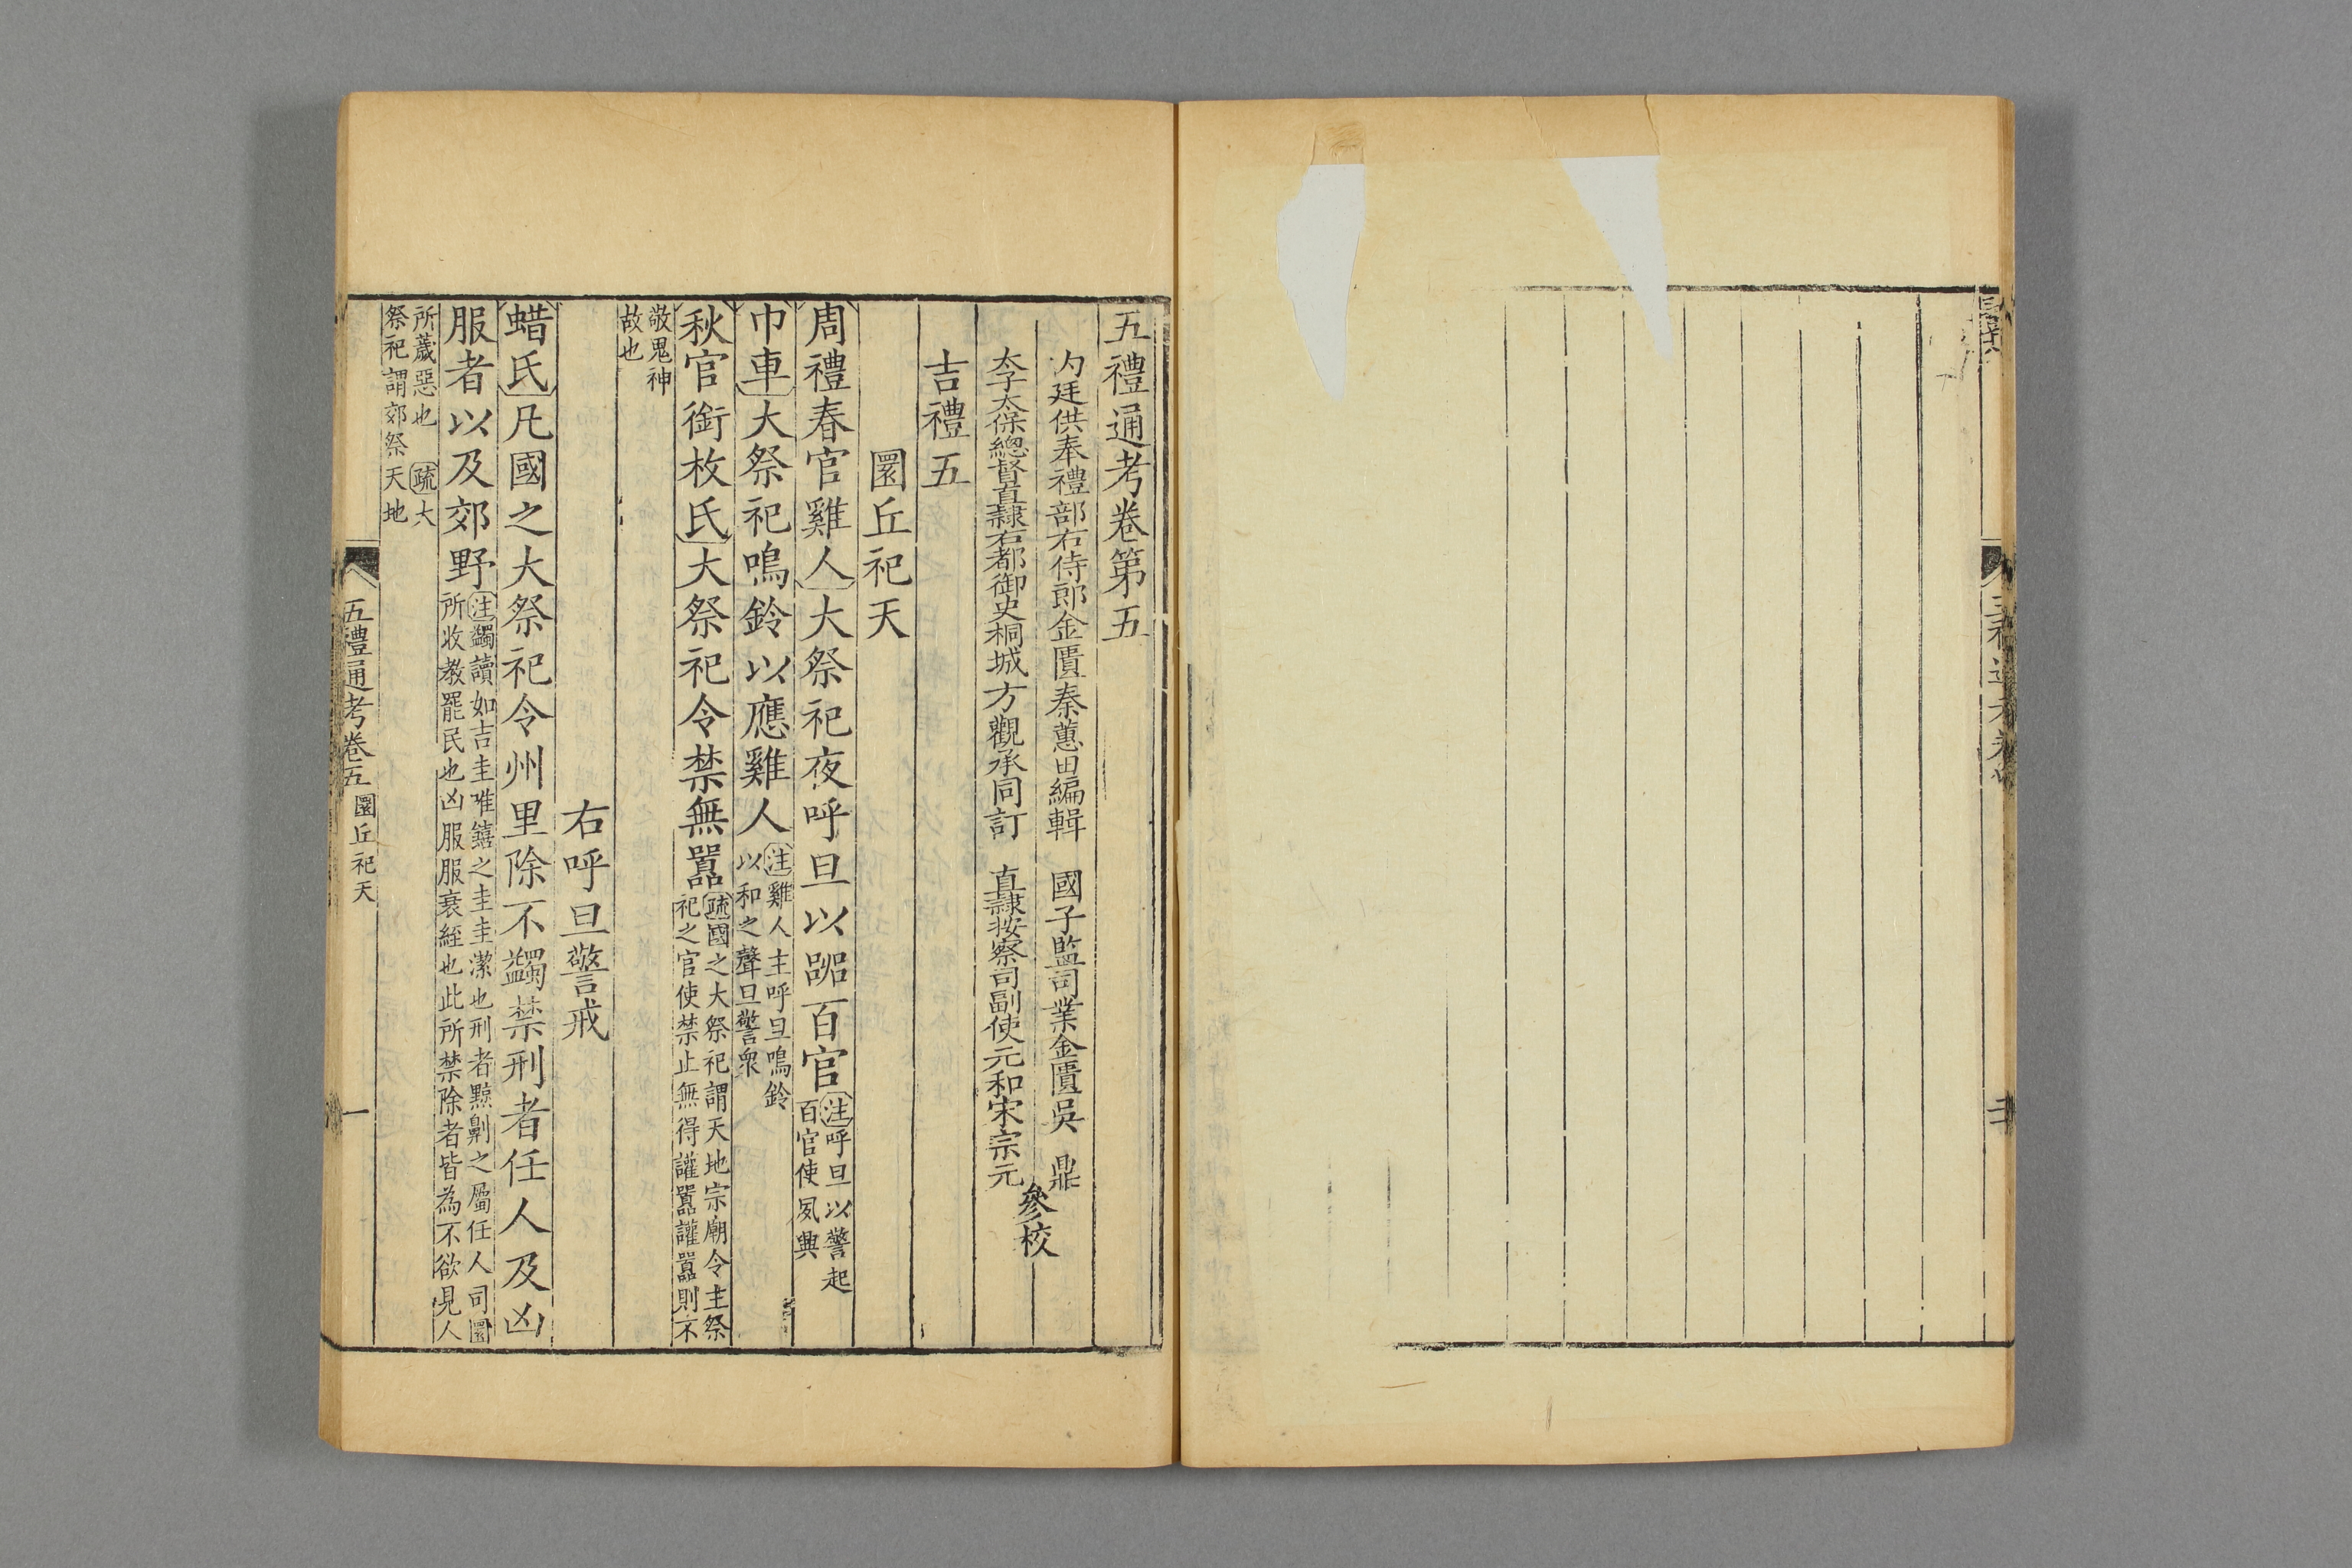 五禮通考卷第五
內廷供奉禮部右侍郎金匱秦蕙田編輯　國子監司業金匱吳　鼎
太子太保總督直隸右都御史桐城方觀承同訂　直隸按察司副使元和宋宗元
參校
吉禮五
圜丘祀天
周禮春官雞人大祭祀夜呼旦以嘂百官注呼旦以警起
百官使夙興
巾車大祭祀鳴鈴以應雞人注雞人主呼旦鳴鈴
以和之聲旦警衆
秋官銜枚氏大祭祀令禁無嚻疏國之大祭祀謂天地宗廟令主祭
祀之官使禁止無得讙嚻讙嚻則不
敬鬼神
故也
右呼旦警戒
蜡氏凡國之大祭祀令州里除不蠲禁刑者任人及凶
服者以及郊野注蠲讀如吉圭唯饎之圭圭潔也刑者黥劓之屬任人司圜
所收教罷民也凶服服衰絰也此所禁除者皆為不欲見人
所薉惡也　疏大
祭祀謂郊祭天地
五禮通考卷五　圜丘祀天
一